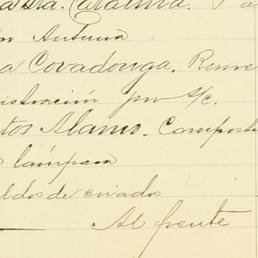 Sra. Catalina. P a
Antuna
a Covadonga. Reme
istración por s/c.
tos Alamo. Composte
lámpara
ldos de criados
Al frente